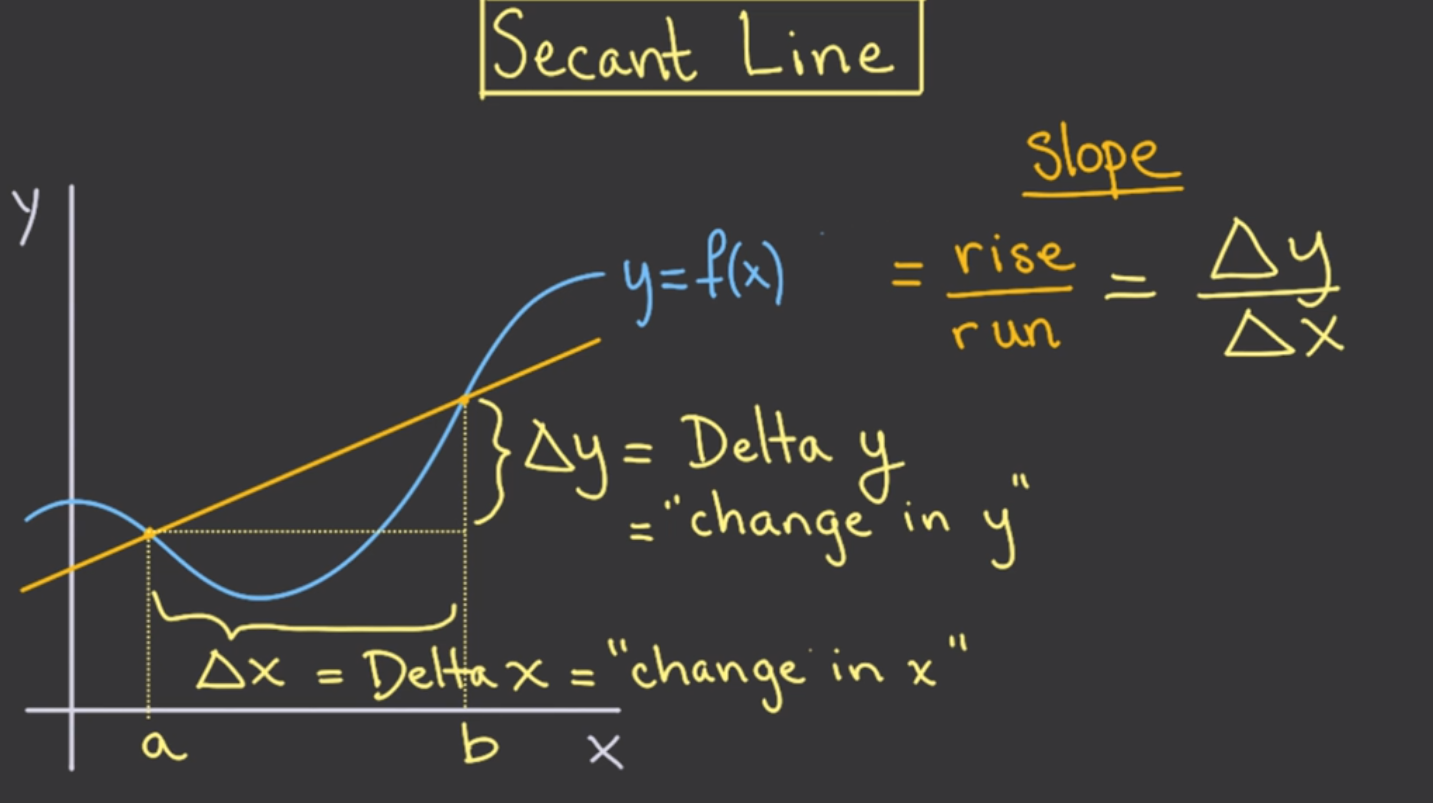 Secant Line
Slope
y
y=f(x)
= rise/run = Δy/Δx
Δy = Delta y
= "change in y"
Δx = Delta x = "change in x"
a b x